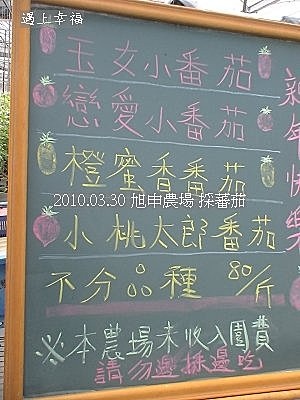 遇上幸福
玉女小番茄
戀愛小番茄
橙蜜香番茄
2010.03.30 旭申農場 採番茄
小桃太郎番茄
不分品種 80/斤
※本農場未收入園費
請勿邊採邊吃
年快樂